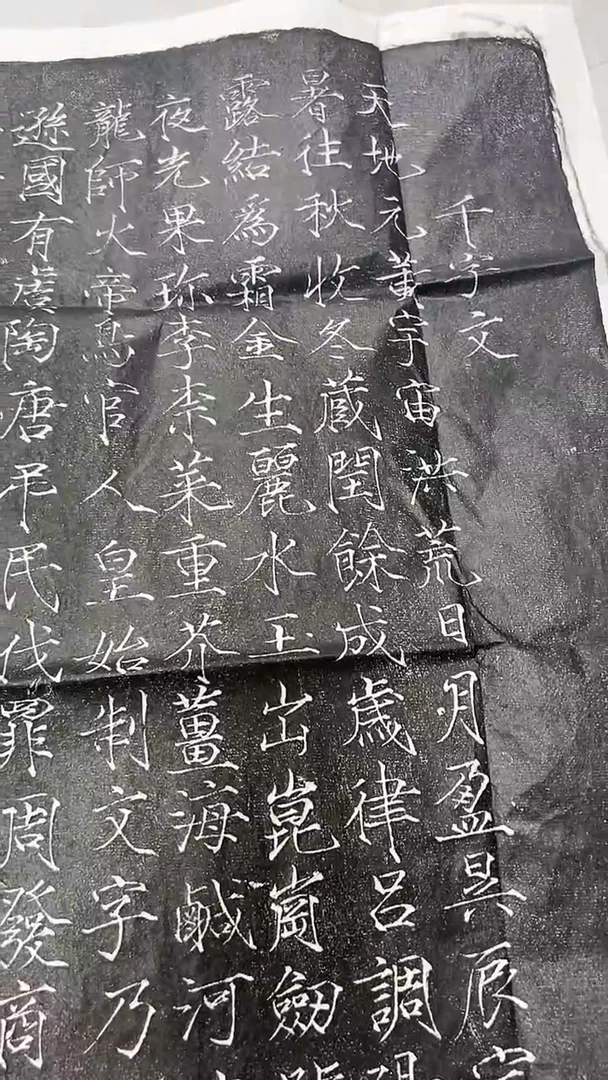 千字文
天地元黃宇宙洪荒日月盈昃辰
暑往秋收冬蔵閏餘成歲律呂調
露結爲霜金生麗水玉出崑崗劒
夜光果珍李柰菜重芥薑海鹹河
龍師火帝鳥官人皇始制文字乃
遜國有虞陶唐弔民伐罪周發商